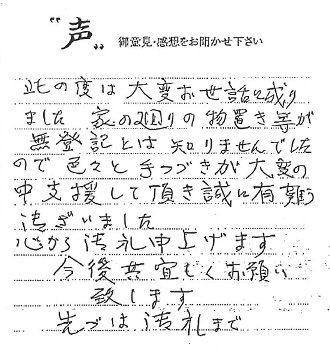 "声" 御意見・感想をお聞かせ下さい
此の度は大変お世話に成り
ました 家の廻りの物置き等が
無登記とは知りませんでした
ので色々と手つづきが大変の
中支援して頂き誠に有難う
御ざいました
心から御礼申上げます
今後共宜しくお願い
致します
先づは御礼まで